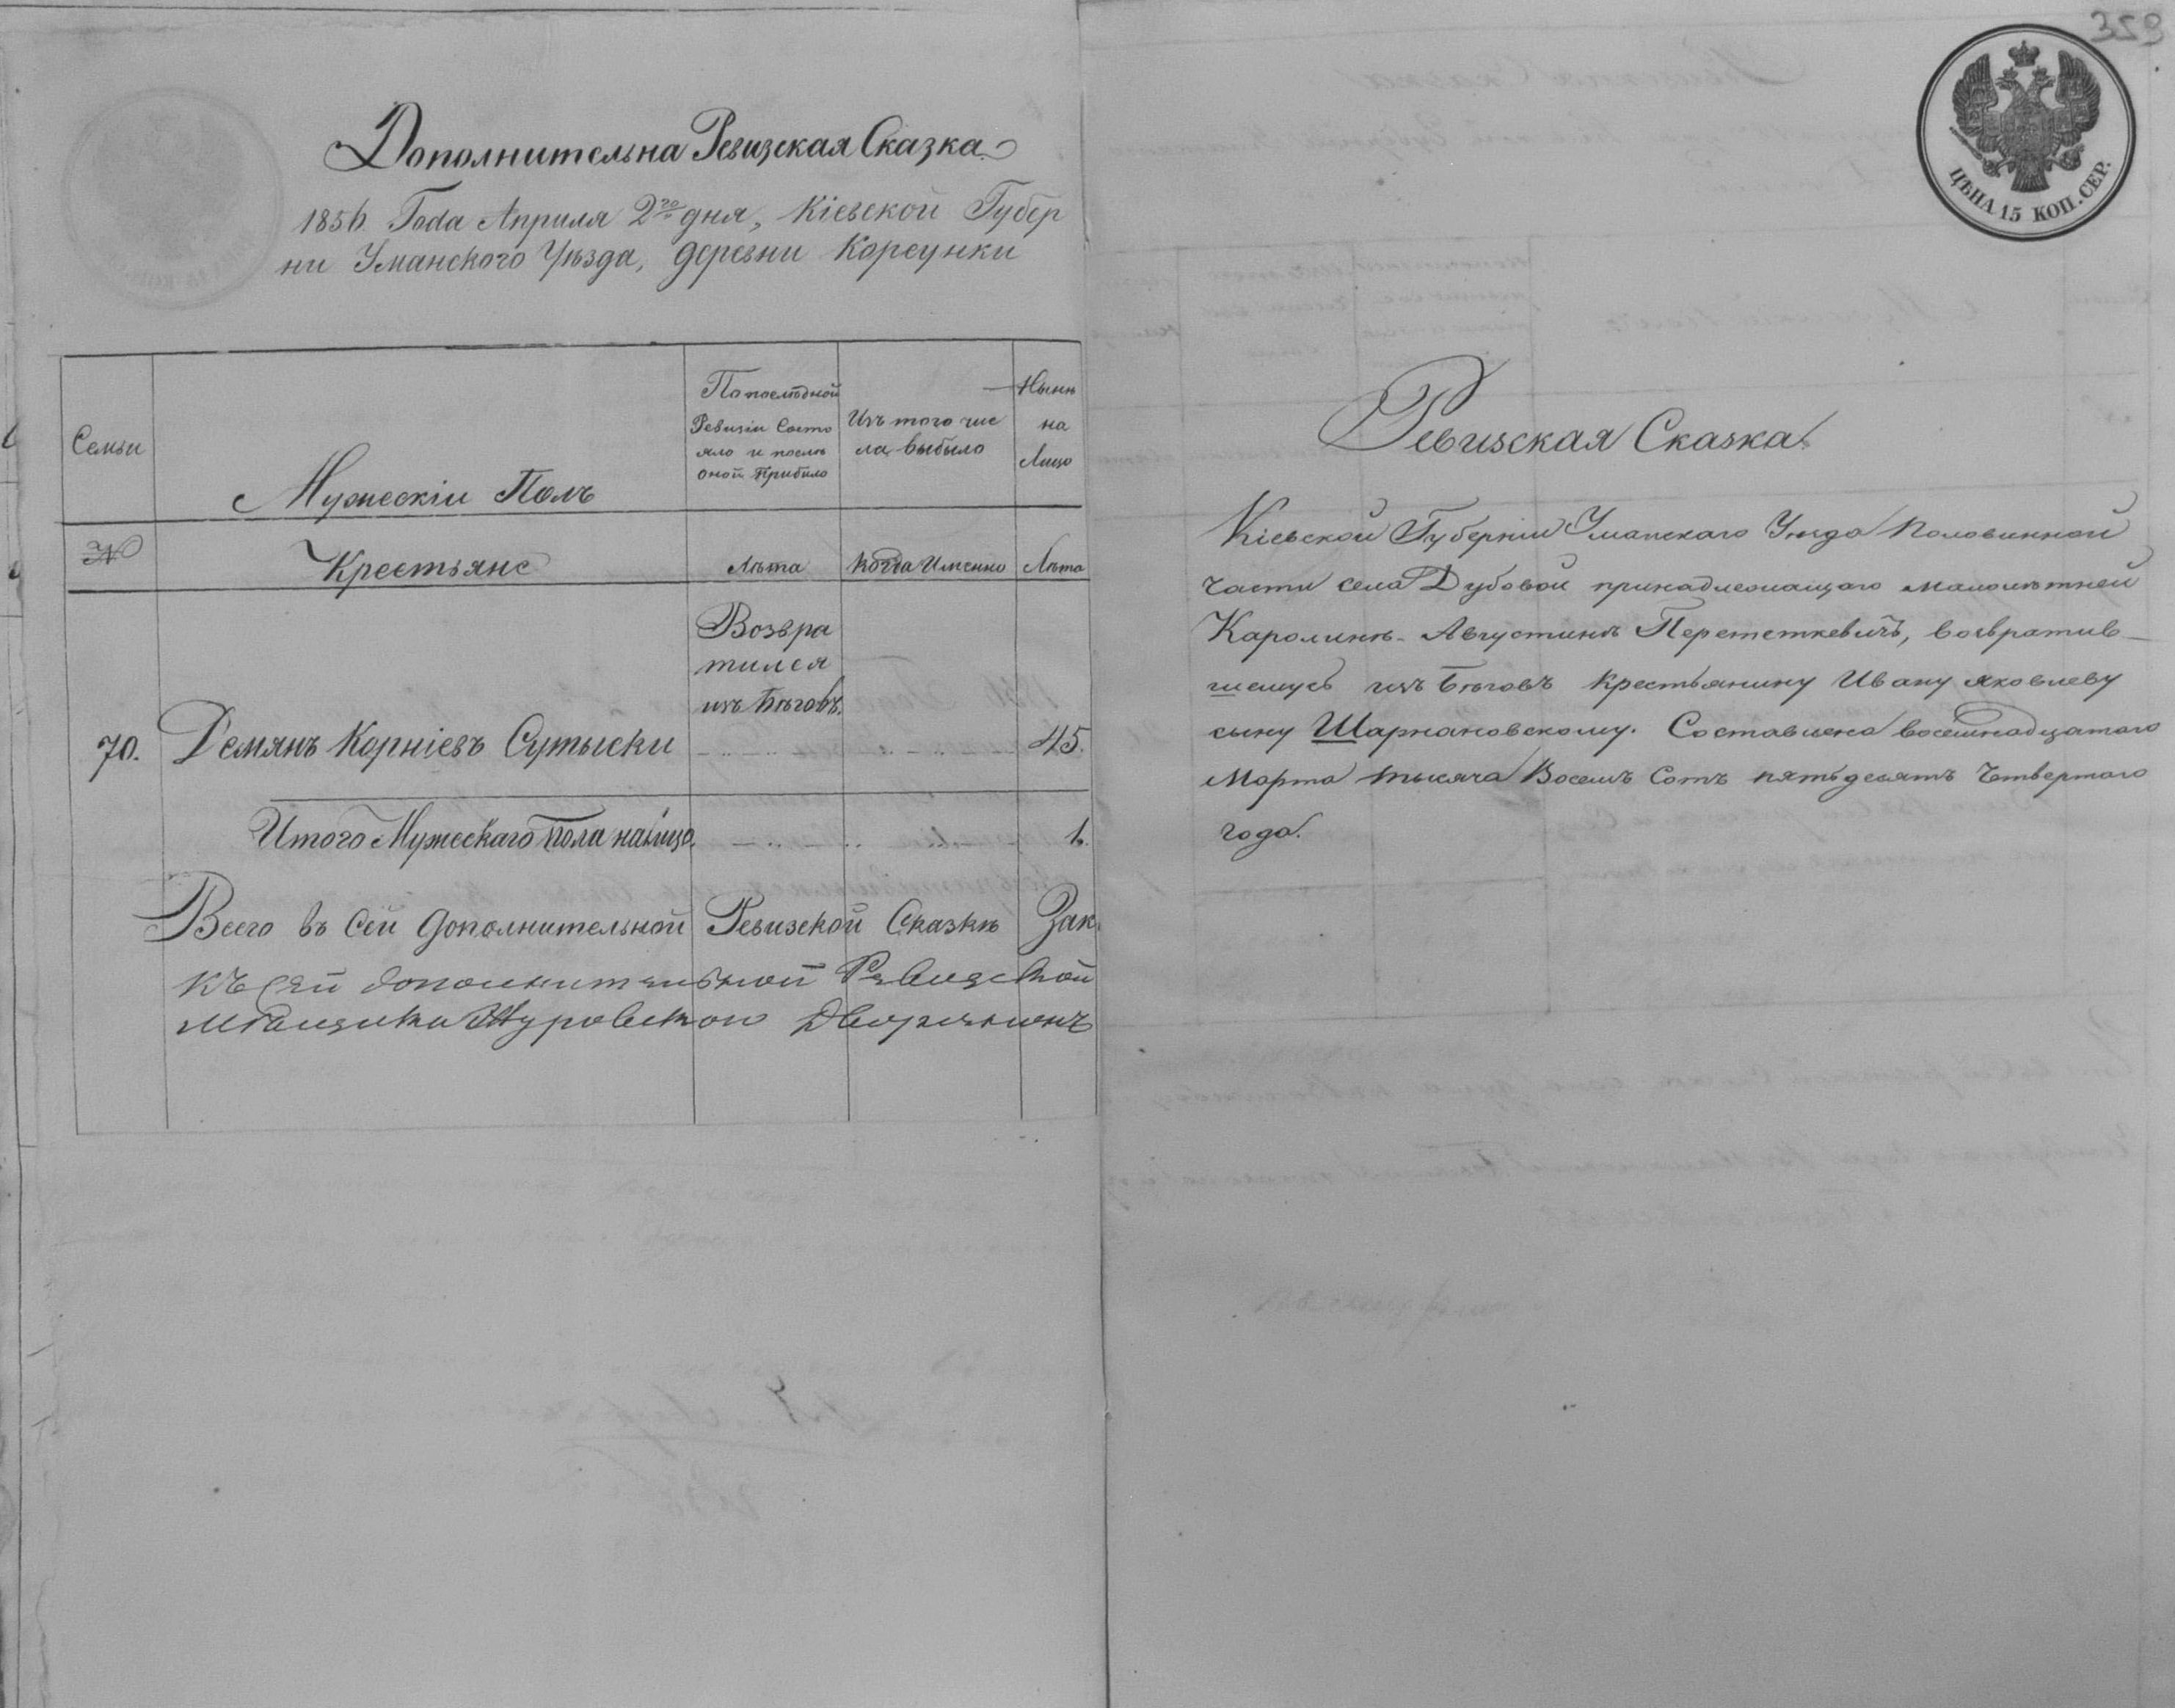 Дополнительна Ревизская Сказка
1856 Года Апреля 2го дня, Кіевской Губер
ни Уманского Уѣзда, деревни Корсунки
Семьи
Мужескіи Полъ
По послѣдной
Ревизіи Состо
яло и послѣ
оной Прибыло
Изъ того чис
ла выбыло
Нынѣ
на
Лицо
№
Крестьяне
Лѣта
Когда Именно
Лѣта
Возвра
тился
изъ Бѣговъ.
70. Демянъ Корніевъ Сутыски 45.
Итого Мужескаго Пола налицо. 1.
Всего въ Сей дополнительной Ревизской Сказкѣ Зак.
Къ сей дополнительной Ревизской
Дворянинъ
359
ЦѢНА 15 КОП. СЕР.
Ревизская Сказка
Кіевской Губерніи Уманскаго Уѣзда Половинной
части села Дубовой принадлежащаго малолѣтней
Каролинѣ-Августинѣ Перетяткевичъ, возвратив-
шемусь изъ Бѣговъ крестьянину Ивану Яковлеву
сыну Шарнановскому. Составлена восемнадцатого
Марта тысяча Восемъ Сотъ пятьдесятъ Четвертого
года.